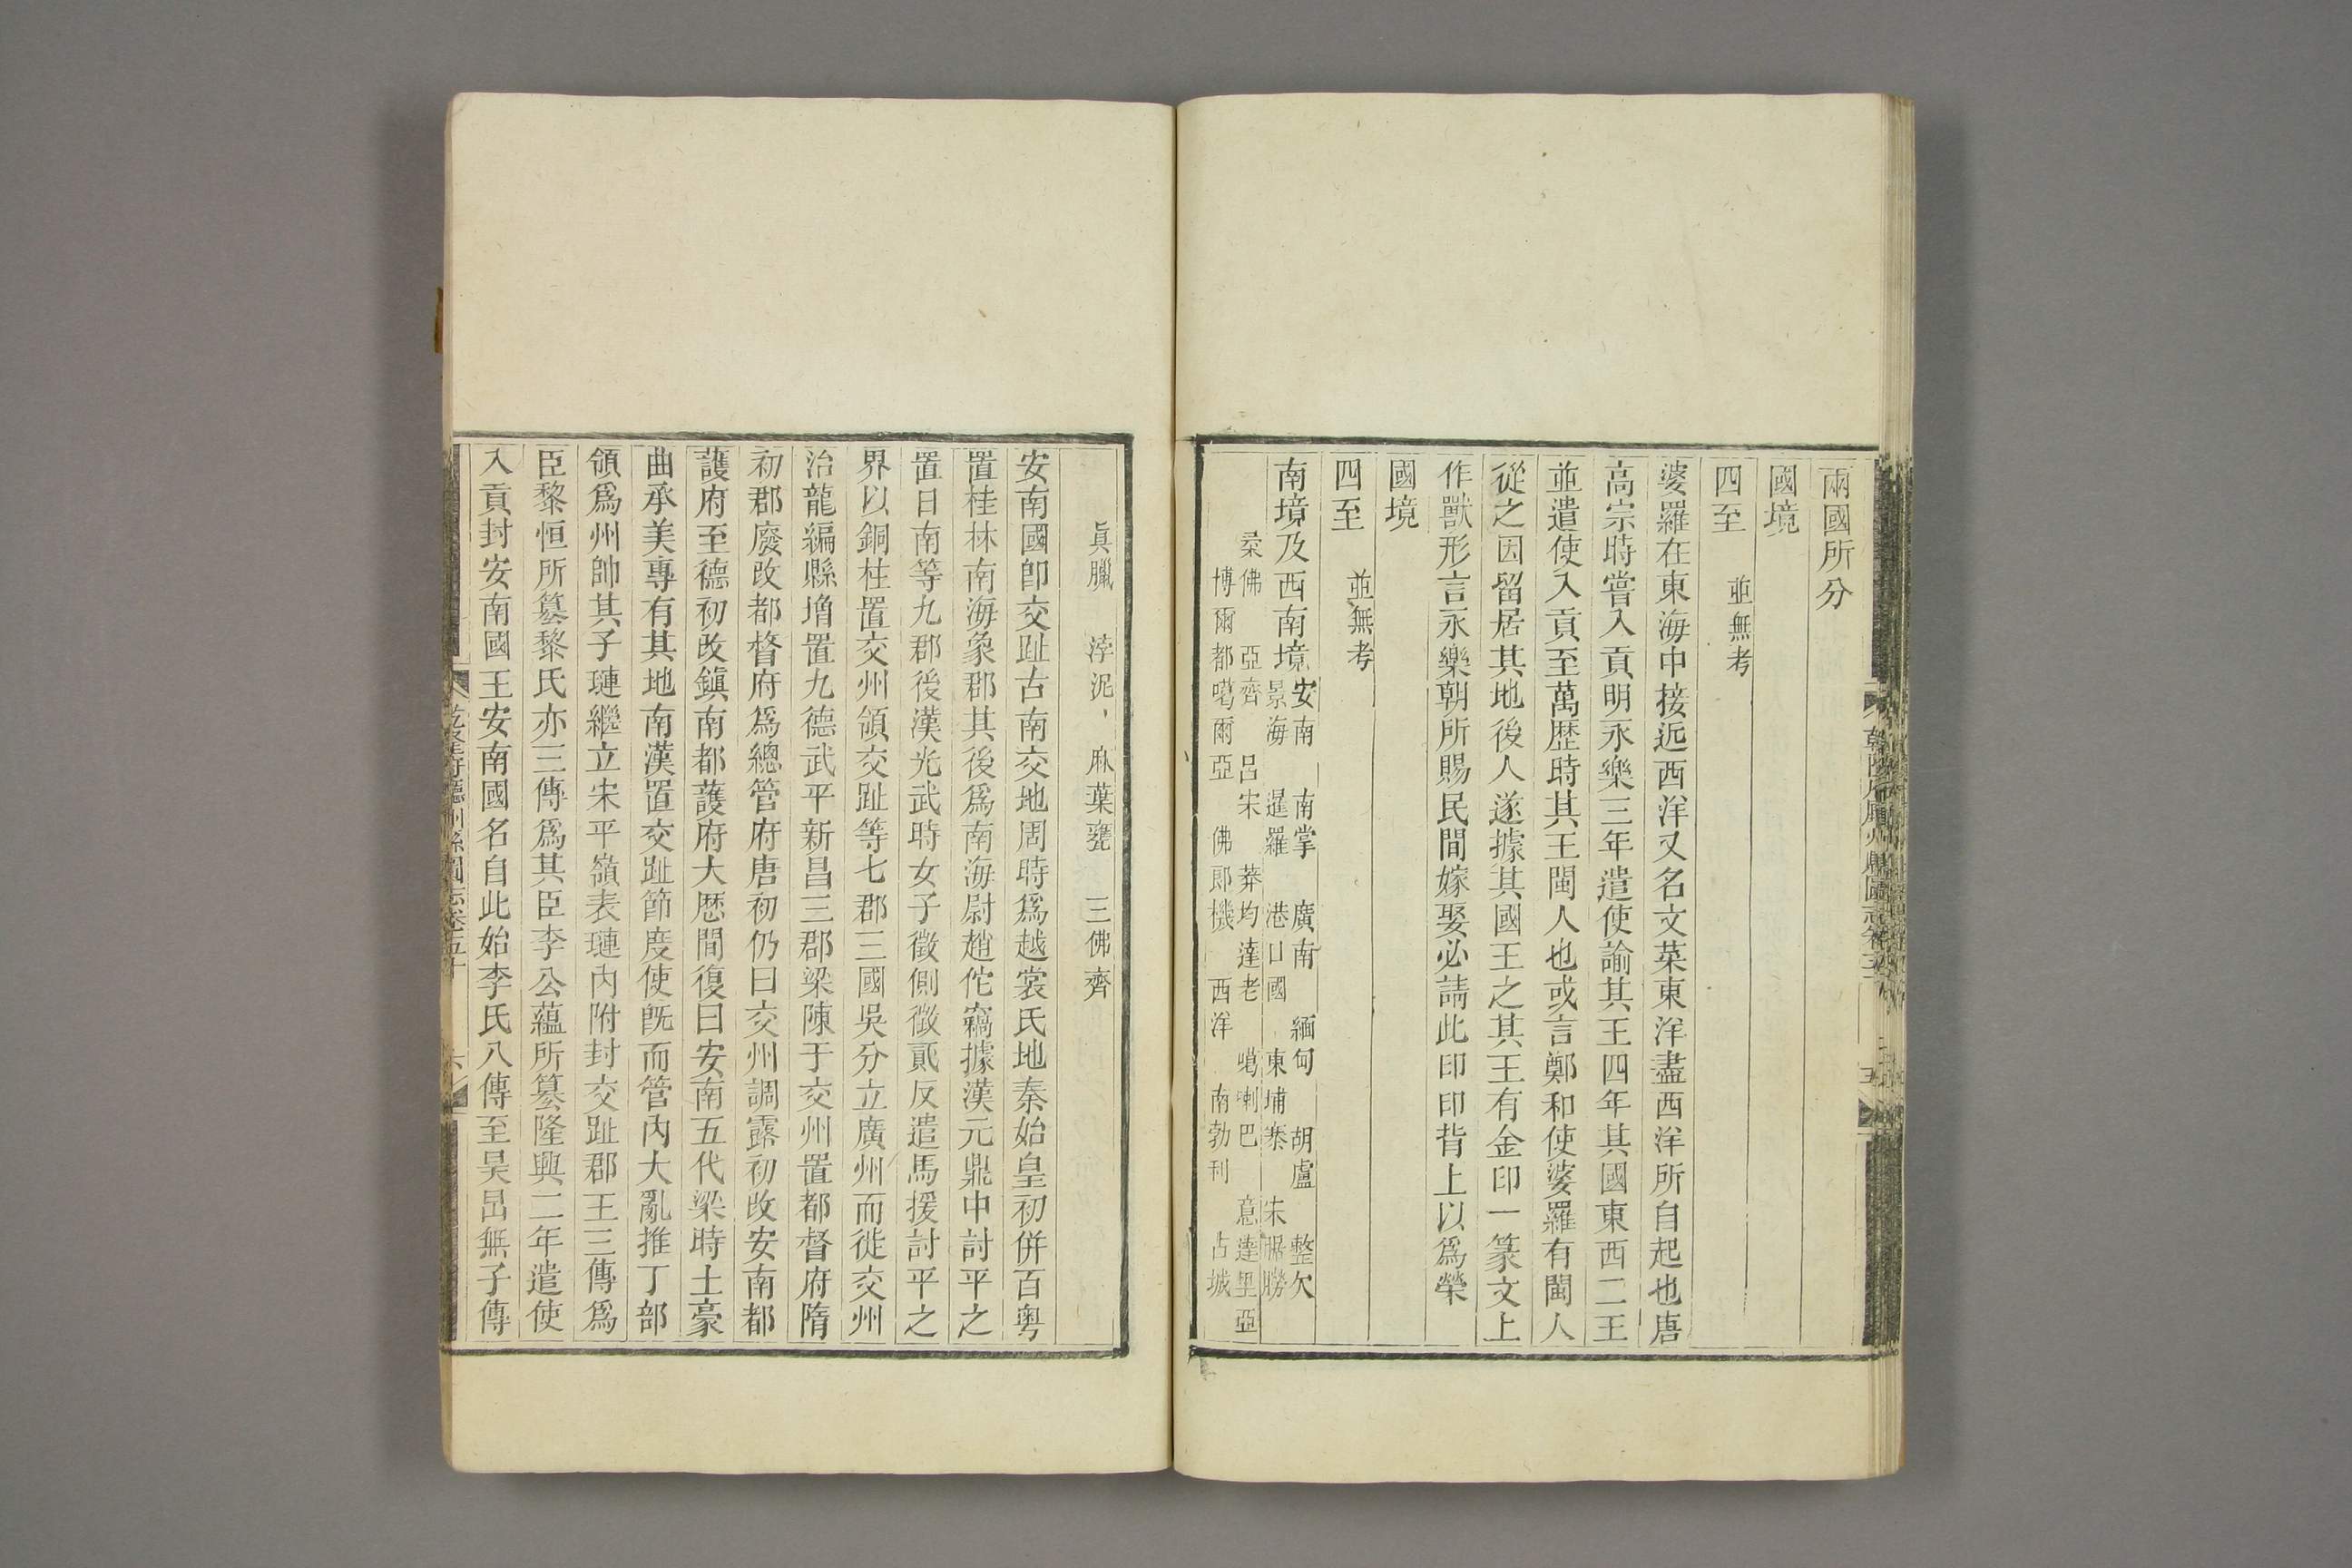 兩國所分
國境
四至　並無考
婆羅在東海中接近西洋又名文萊東洋盡西洋所自起也唐
高宗時嘗入貢明永樂三年遣使諭其王四年其國東西二王
並遣使入貢至萬歴時其王閩人也或言鄭和使婆羅有閩人
從之因留居其地後人遂據其國王之其王有金印一篆文上
作獸形言永樂朝所賜民間嫁娶必請此印印背上以爲榮
國境
四至　並無考
南境及西南境
安南　南掌　廣南　緬甸　胡盧　整欠
景海　暹羅　港口國　東埔寨　宋腒勝
柔佛　亞齊　呂宋　莽均達老　噶喇巴　意達里亞
博爾都噶爾亞　佛郎機　西洋　南勃利　占城
眞臘　浡泥　麻葉甕　三佛齊
安南國卽交趾古南交地周時爲越裳氏地秦始皇初併百粵
置桂林南海象郡其後爲南海尉趙佗竊據漢元鼎中討平之
置日南等九郡後漢光武時女子徵側徵貳反遣馬援討平之
界以銅柱置交州領交趾等七郡三國吳分立廣州而徙交州
治龍編縣增置九德武平新昌三郡梁陳于交州置都督府隋
初郡廢改都督府爲總管府唐初仍曰交州調露初改安南都
護府至德初改鎭南都護府大歴間復曰安南五代梁時土豪
曲承美專有其地南漢置交趾節度使旣而管內大亂推丁部
領爲州帥其子璉繼立宋平嶺表璉內附封交趾郡王三傳爲
臣黎恒所篡黎氏亦三傳爲其臣李公蘊所篡隆興二年遣使
入貢封安南國王安南國名自此始李氏八傳至昊旵無子傳